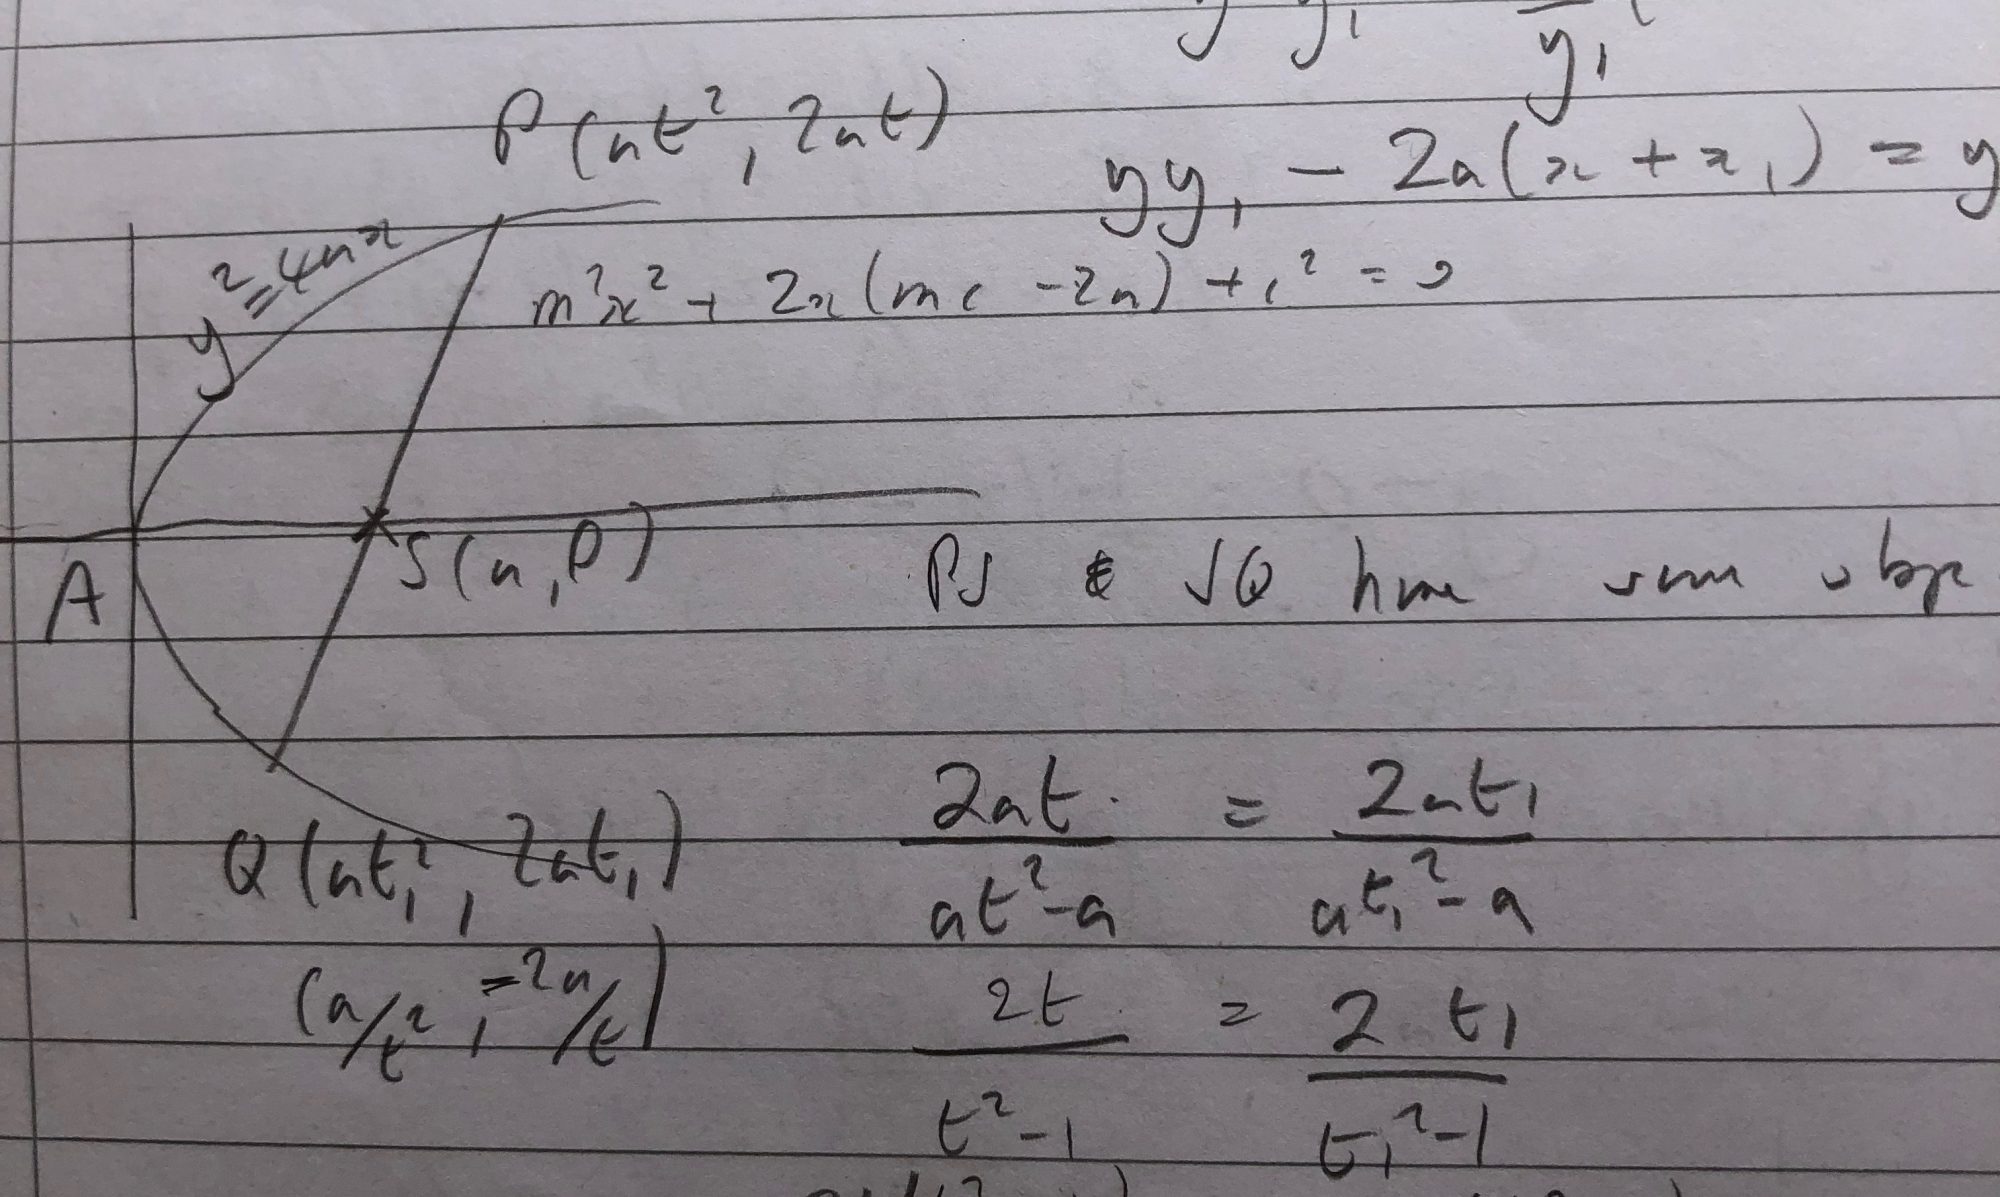 y y₁ y₁
P(at², 2at)
yy₁ - 2a(x + x₁) = y
y² = 4ax
m²x² + 2x(mc - 2a) + c² = 0
A
S(a, 0)
PS & SQ have same slope
2at / at² - a = 2at₁ / at₁² - a
Q(at₁², 2at₁)
(a/t², -2a/t)
2t / t² - 1 = 2t₁ / t₁² - 1